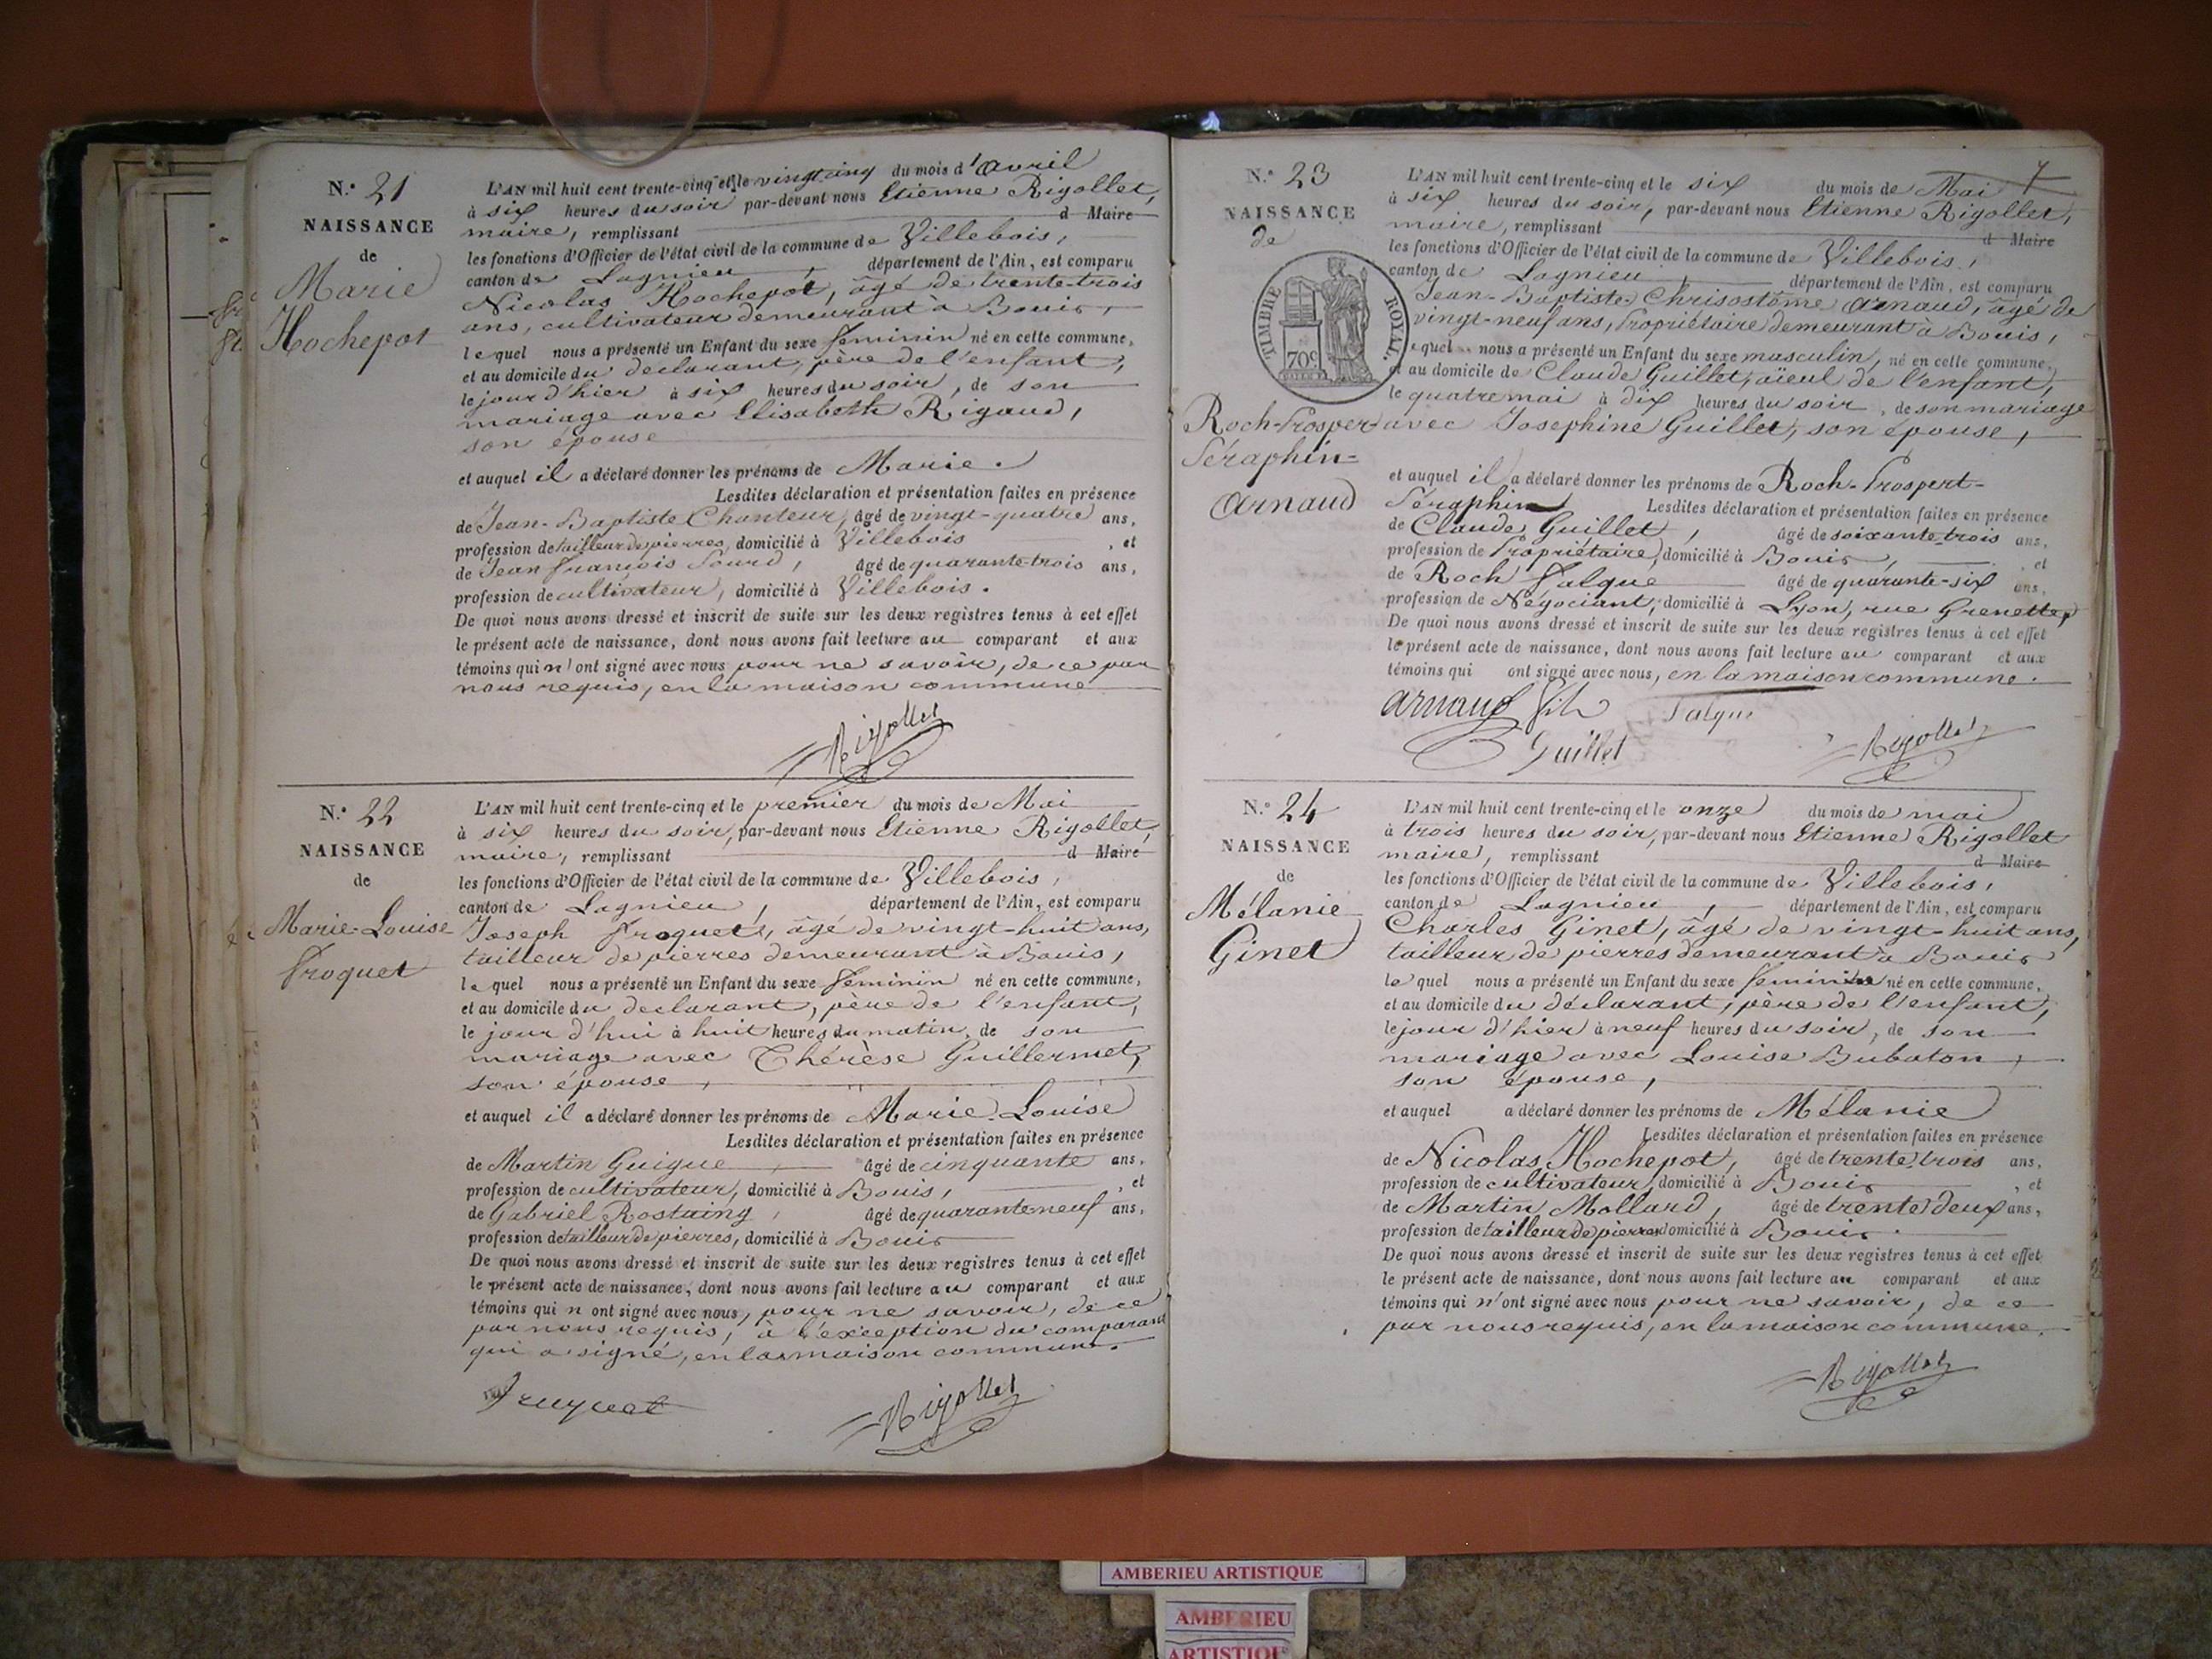 N.° 21
NAISSANCE
de
Marie
Hochepot
L'AN mil huit cent trente-cinq et le vingt cinq du mois d'Avril
à six heures du soir par-devant nous Etienne Rigollet,
maire, remplissant d Maire
les fonctions d'Officier de l'état civil de la commune de Villebois,
canton de Lagnieu, département de l'Ain, est comparu
Nicolas Hochepot, âgé de trente-trois
ans, cultivateur demeurant à Bouis,
lequel nous a présenté un Enfant du sexe féminin né en cette commune,
et au domicile du declarant, père de l'enfant,
le jour d'hier à six heures du soir, de son
mariage avec Elisabeth Rigaud,
son épouse
et auquel il a déclaré donner les prénoms de Marie.
Lesdites déclaration et présentation faites en présence
de Jean-Baptiste Chanteur, âgé de vingt-quatre ans,
profession de tailleur de pierres, domicilié à Villebois, et
de Jean François Sourd, âgé de quarante-trois ans,
profession de cultivateur, domicilié à Villebois.
De quoi nous avons dressé et inscrit de suite sur les deux registres tenus à cet effet
le présent acte de naissance, dont nous avons fait lecture au comparant et aux
témoins qui n'ont signé avec nous pour ne savoir, de ce par
nous requis, en la maison commune
Rigollet
N.° 22
NAISSANCE
de
Marie-Louise
Froquet
L'AN mil huit cent trente-cinq et le premier du mois de Mai
à six heures du soir, par-devant nous Etienne Rigollet,
maire, remplissant d Maire
les fonctions d'Officier de l'état civil de la commune de Villebois,
canton de Lagnieu, département de l'Ain, est comparu
Joseph Froquet, âgé de vingt-huit ans,
tailleur de pierres demeurant à Bouis,
lequel nous a présenté un Enfant du sexe féminin né en cette commune,
et au domicile du declarant, père de l'enfant,
le jour d'hui à huit heures du matin, de son
mariage avec Thérèse Guillermet,
son épouse,
et auquel il a déclaré donner les prénoms de Marie Louise
Lesdites déclaration et présentation faites en présence
de Martin Guigue, âgé de cinquante ans,
profession de cultivateur, domicilié à Bouis, et
de Gabriel Rostaing, âgé de quarante neuf ans,
profession de tailleur de pierres, domicilié à Bouis
De quoi nous avons dressé et inscrit de suite sur les deux registres tenus à cet effet
le présent acte de naissance, dont nous avons fait lecture au comparant et aux
témoins qui n ont signé avec nous, pour ne savoir, de ce
par nous requis, à l'exception du comparant
qui a signé, en la maison commune.
Rigollet
7
N.° 23
NAISSANCE
de
TIMBRE ROYAL.
70c
Roch-Prosper
Séraphin-
Arnaud
L'AN mil huit cent trente-cinq et le six du mois de Mai
à six heures du soir, par-devant nous Etienne Rigollet,
maire, remplissant d Maire
les fonctions d'Officier de l'état civil de la commune de Villebois,
canton de Lagnieu, département de l'Ain, est comparu
Jean-Baptiste Chrisostôme Arnaud, âgé de
vingt-neuf ans, Propriétaire demeurant à Bouis,
lequel nous a présenté un Enfant du sexe masculin, né en cette commune,
et au domicile de Claude Guillet, aïeul de l'enfant,
le quatre mai à dix heures du soir, de son mariage
avec Josephine Guillet, son épouse,
et auquel il a déclaré donner les prénoms de Roch-Prospert-
Séraphin Lesdites déclaration et présentation faites en présence
de Claude Guillet, âgé de soixante-trois ans,
profession de Propriétaire, domicilié à Bouis, et
de Roch Falque âgé de quarante-six ans,
profession de Négociant, domicilié à Lyon, rue Grenette,
De quoi nous avons dressé et inscrit de suite sur les deux registres tenus à cet effet
le présent acte de naissance, dont nous avons fait lecture au comparant et aux
témoins qui ont signé avec nous, en la maison commune.
Arnaud fils Falque
Guillet Rigollet
N.° 24
NAISSANCE
de
Mélanie
Ginet
L'AN mil huit cent trente-cinq et le onze du mois de mai
à trois heures du soir, par-devant nous Etienne Rigollet
maire, remplissant d Maire
les fonctions d'Officier de l'état civil de la commune de Villebois,
canton de Lagnieu, département de l'Ain, est comparu
Charles Ginet, âgé de vingt-huit ans,
tailleur de pierres demeurant à Bouis
lequel nous a présenté un Enfant du sexe féminin né en cette commune,
et au domicile du déclarant, père de l'enfant,
le jour d'hier à neuf heures du soir, de son
mariage avec Louise Bubaton,
son épouse,
et auquel a déclaré donner les prénoms de Mélanie
Lesdites déclaration et présentation faites en présence
de Nicolas Hochepot, âgé de trente-trois ans,
profession de cultivateur, domicilié à Bouis, et
de Martin Mollard, âgé de trente deux ans,
profession de tailleur de pierres domicilié à Bouis.
De quoi nous avons dressé et inscrit de suite sur les deux registres tenus à cet effet
le présent acte de naissance, dont nous avons fait lecture au comparant et aux
témoins qui n'ont signé avec nous pour ne savoir, de ce
par nous requis, en la maison commune.
Rigollet
AMBERIEU ARTISTIQUE
AMBERIEU
ARTISTIQUE